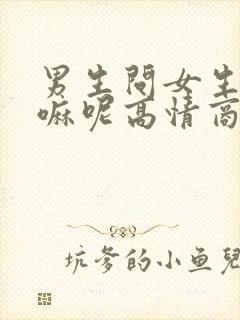 男生問女生
嘛呢高情商
坑爹的小鱼兒